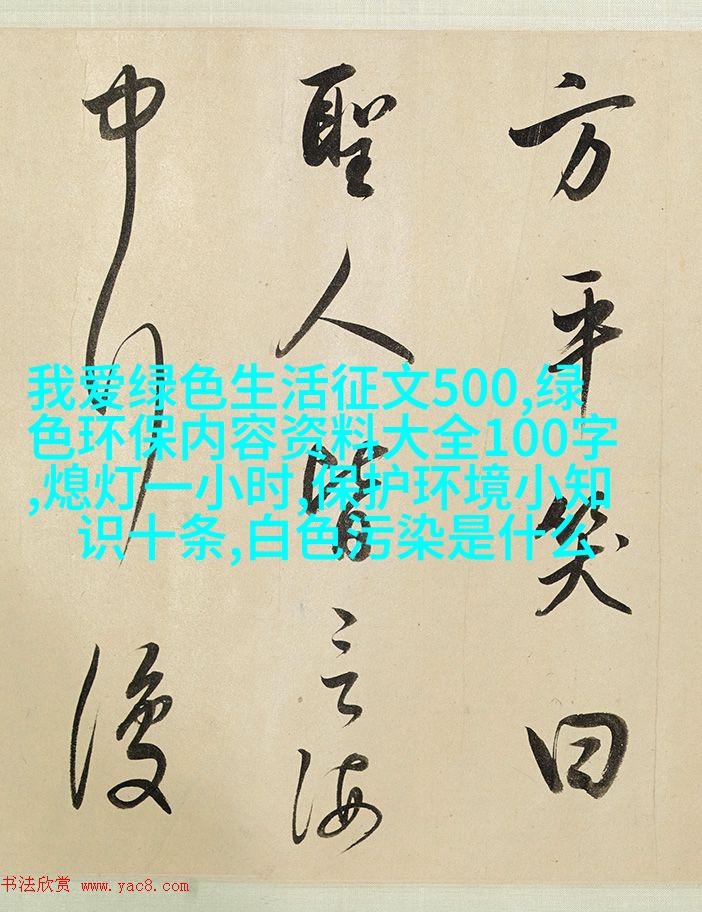 方平笑曰
聖人皆言海
中行復
我爱绿色生活征文500,绿
色环保内容资料大全100字
,熄灯一小时,保护环境小知
识十条,白色污染是什么
书法欣赏 www.yac8.com